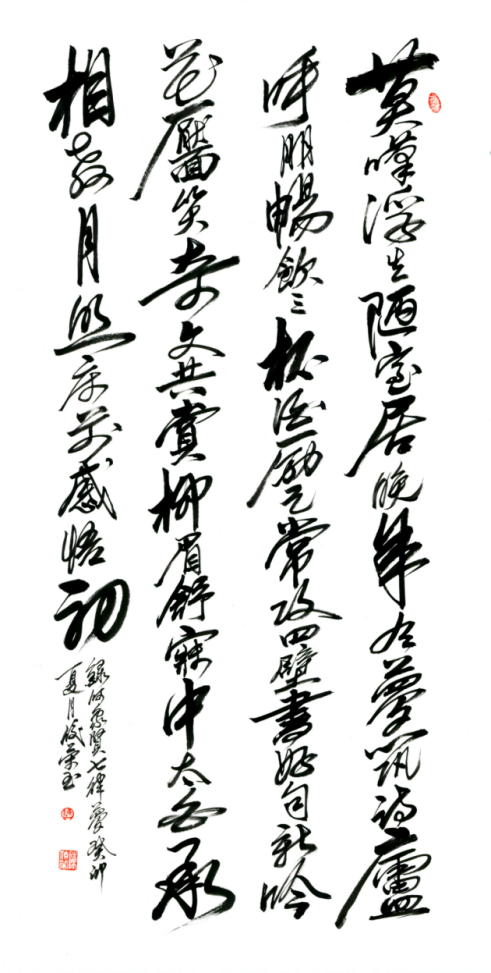 莫嘆浮生陋室居晚年夢筑詩廬
呼朋暢飲三杯酒勵己常攻四壁書好句新吟
花靨笑奇文共賞柳眉舒寐中太白承
相教月照床前感悟初
錄賢七律夢癸卯
夏月